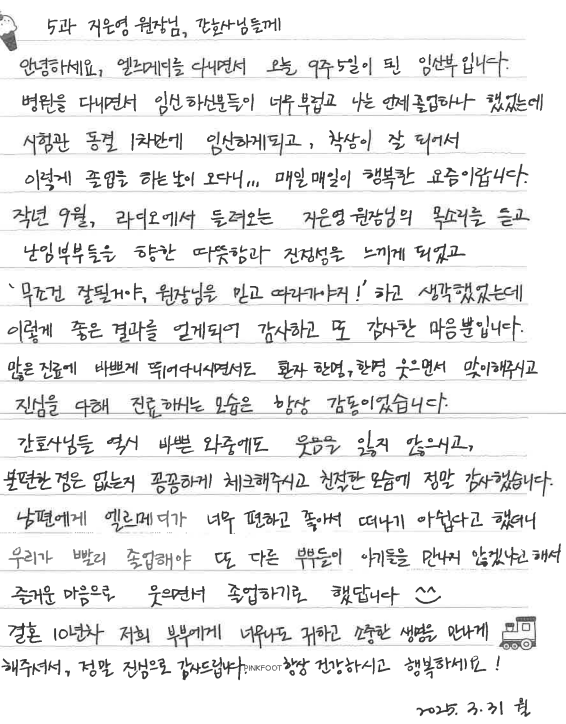 5과 지은영 원장님, 간호사님들께
안녕하세요, 엘르메디를 다니면서 오늘 9주5일이 된 임산부입니다.
병원을 다니면서 임신하신분들이 너무 부럽고 나는 언제 졸업하나 했었는데
시험관 동결 1차만에 임신하게되고, 착상이 잘 되어서
이렇게 졸업을 하는 날이 오다니,,, 매일매일이 행복한 요즘이랍니다.
작년 9월, 라디오에서 들려오는 지은영 원장님의 목소리를 듣고
난임부부들을 향한 따뜻함과 진정성을 느끼게 되었고
'무조건 잘될거야, 원장님을 믿고 따라가야지!' 하고 생각했었는데
이렇게 좋은 결과를 얻게되어 감사하고 또 감사한 마음뿐입니다.
많은 진료에 바쁘게 뛰어다니시면서도 환자 한명, 한명 웃으면서 맞이해주시고
진심을 다해 진료하시는 모습은 항상 감동이었습니다.
간호사님들 역시 바쁜 와중에도 웃음을 잃지 않으시고,
불편한 점은 없는지 꼼꼼하게 체크해주시고 친절한 모습에 정말 감사했습니다.
남편에게 엘르메디가 너무 편하고 좋아서 떠나기 아쉽다고 했더니
우리가 빨리 졸업해야 또 다른 부부들이 아기들을 만나지 않겠냐고 해서
즐거운 마음으로 웃으면서 졸업하기로 했답니다 ^^
결혼 10년차 저희 부부에게 너무나도 귀하고 소중한 생명을 만나게
해주셔서, 정말 진심으로 감사드립니다. 항상 건강하시고 행복하세요!
PINKFOOT
2025. 3. 31 월